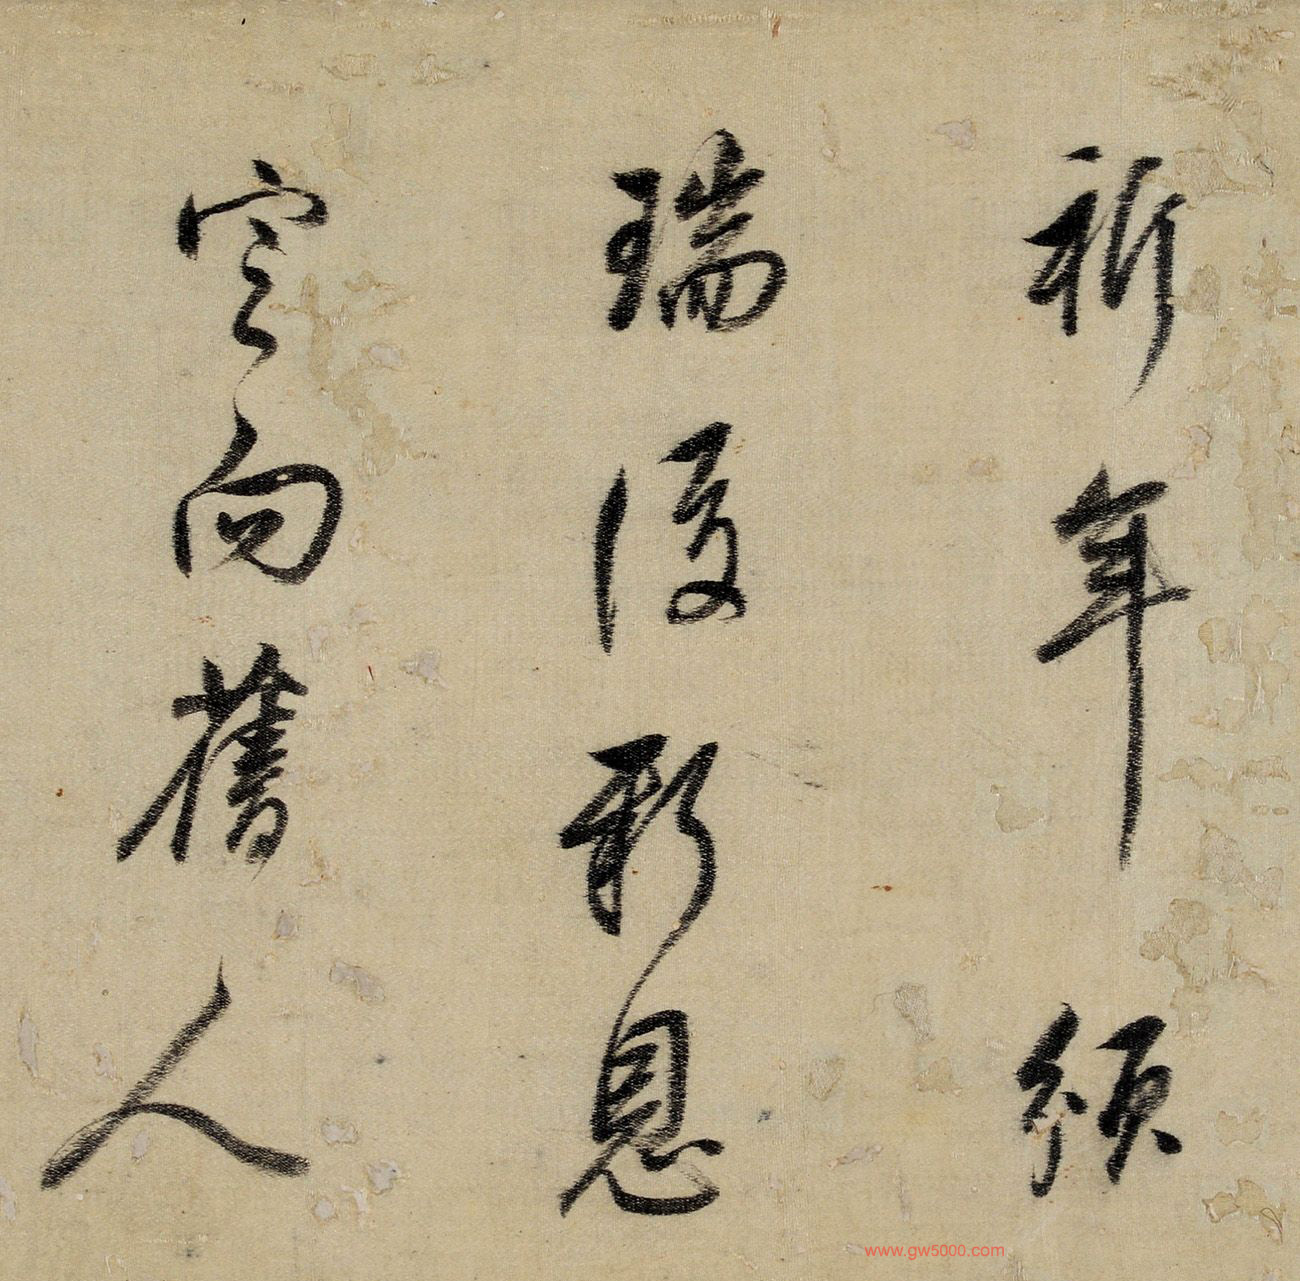 祈年預
瑞後新恩
定向舊人
www.gw5000.com